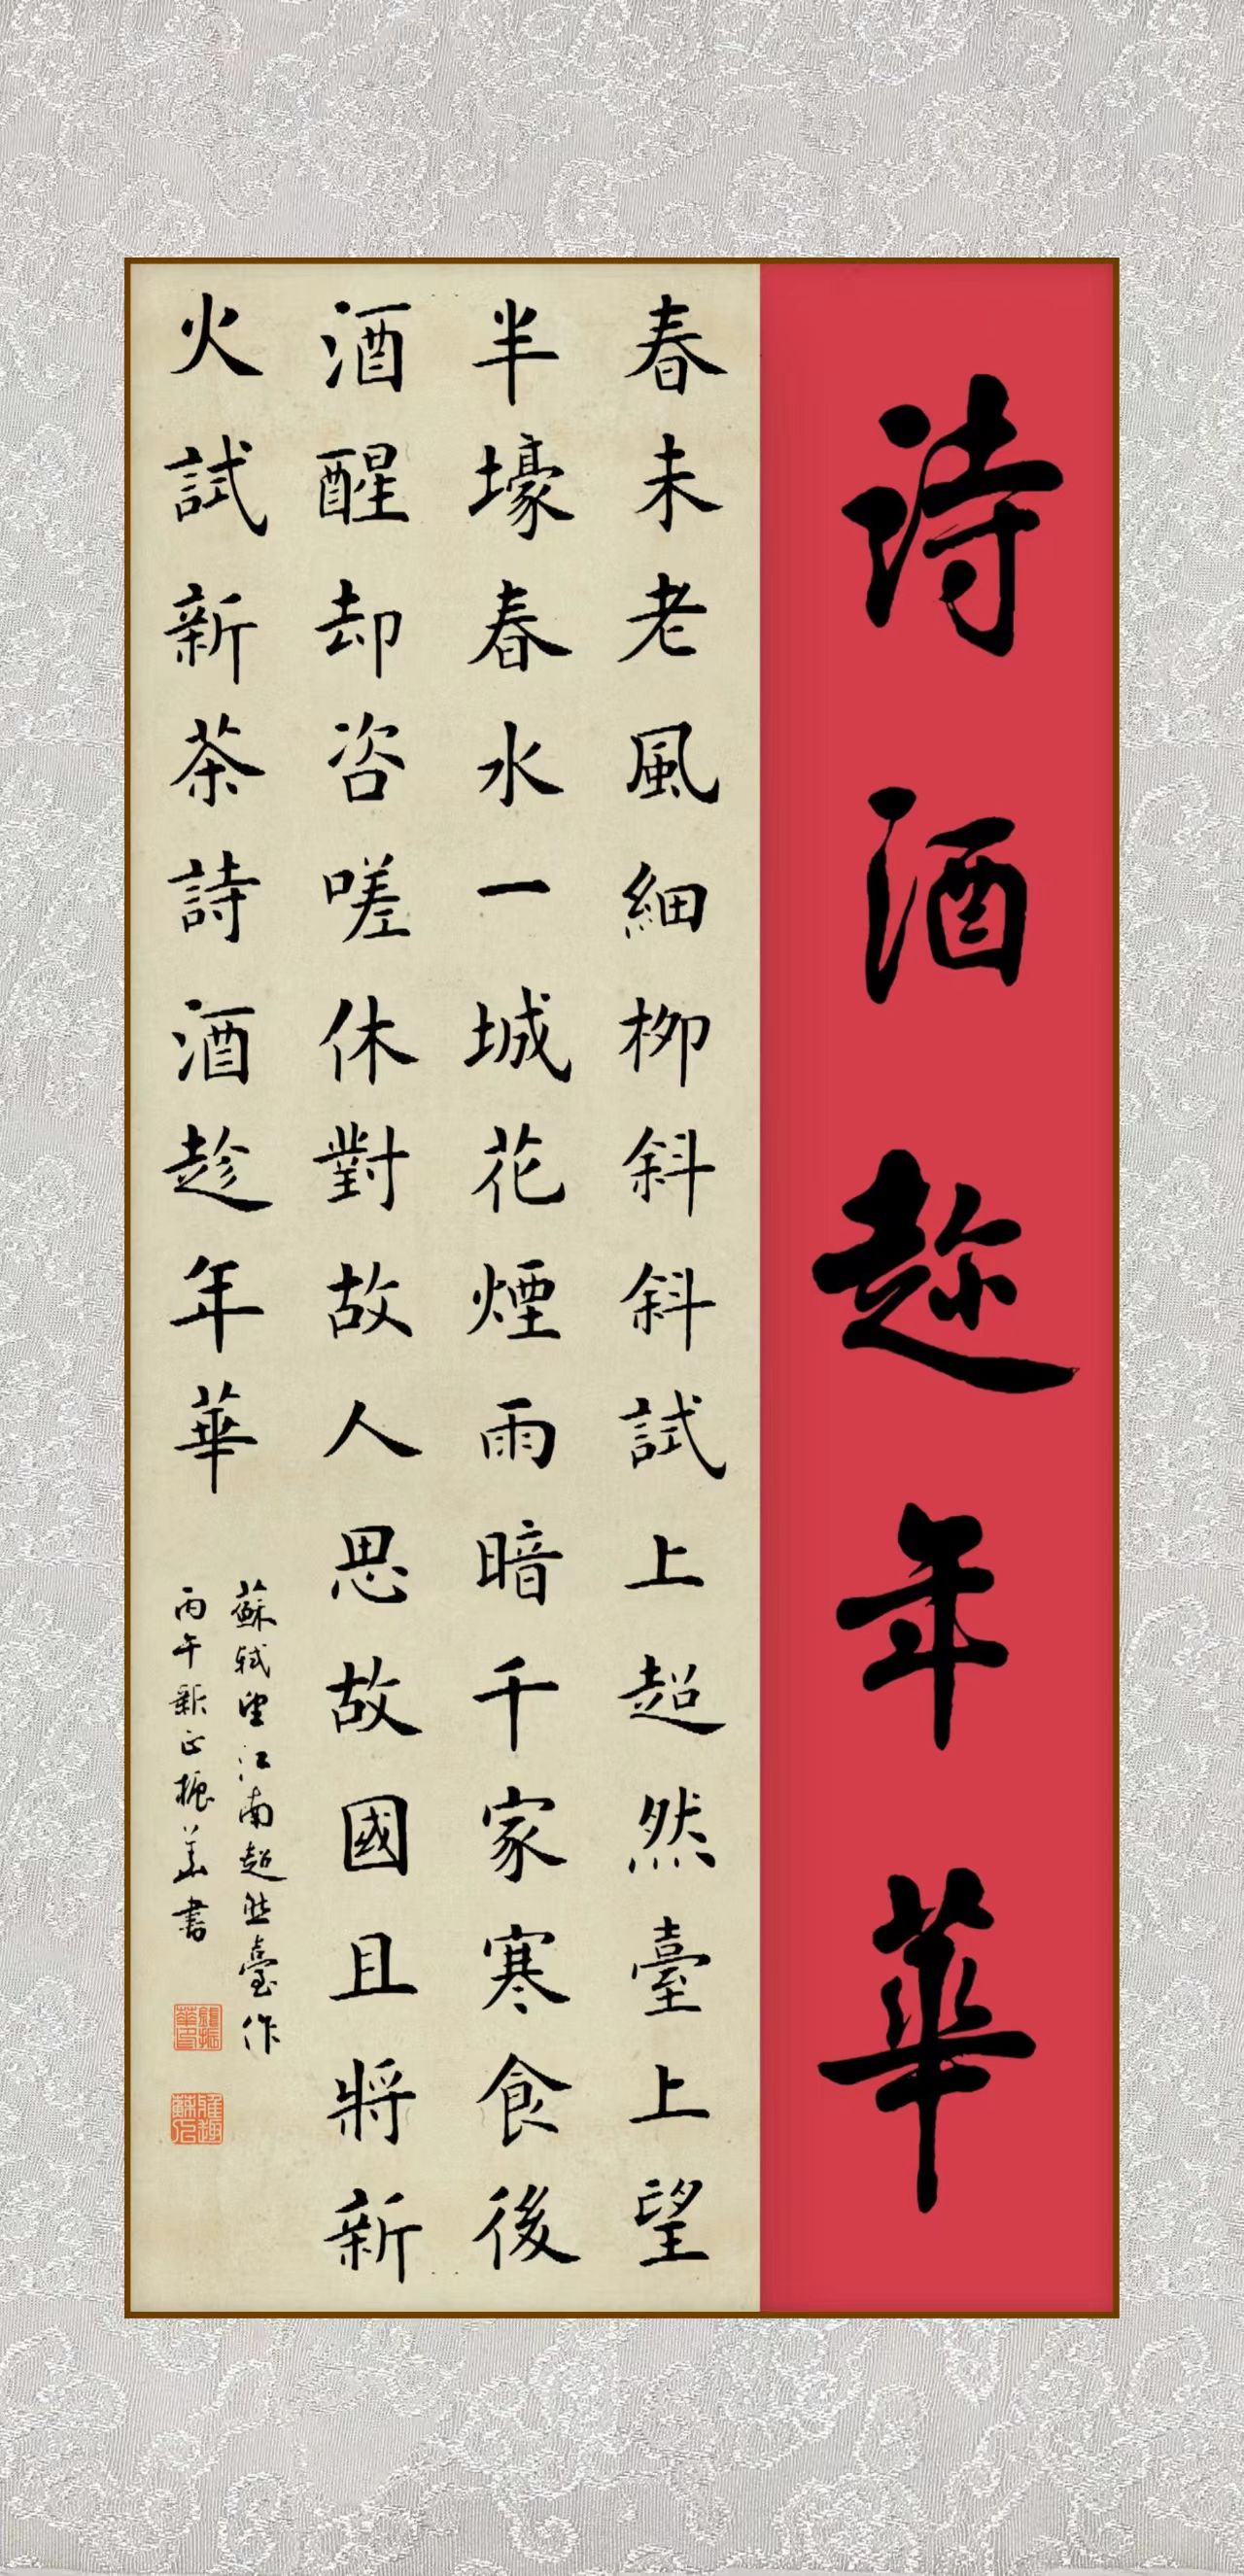 詩酒趁年華
春未老風細柳斜斜試上超然臺上望
半壕春水一城花煙雨暗千家寒食後
酒醒却咨嗟休對故人思故國且將新
火試新茶詩酒趁年華
蘇軾望江南超然臺作
丙午新正振華書